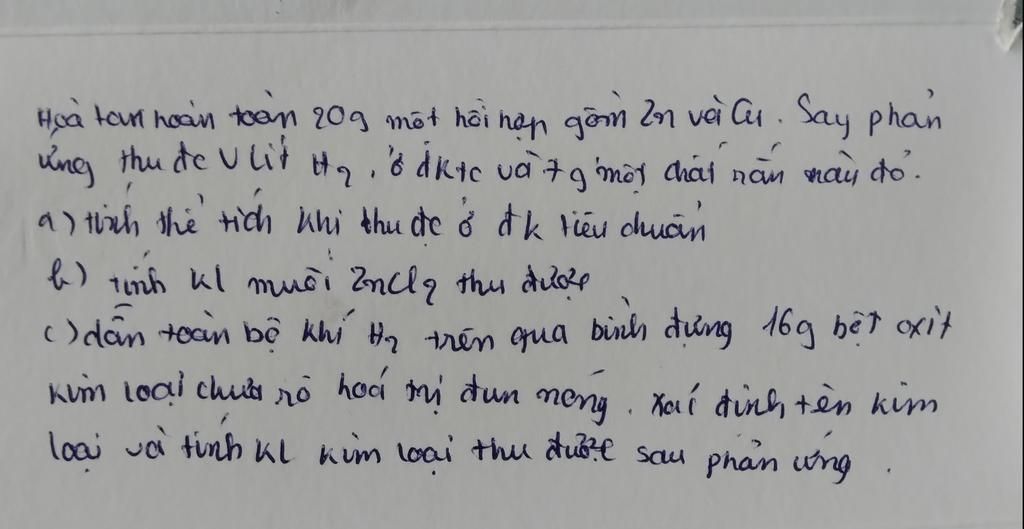 Hoà tan hoàn toàn 20g một hỗi hợp gồm Zn và Cu. Say phản
ứng thu đc V lít H2, ở đktc và 7g một chất rắn màu đỏ.
a) tính thể tích khi thu đc ở đk tiêu chuẩn
b) tính kl muối ZnCl2 thu được
c) dẫn toàn bộ khí H2 trên qua bình đựng 16g bột oxit
kim loại chưa rõ hoá trị đun nóng. xác định tên kim
loại và tính kl kim loại thu được sau phản ứng.